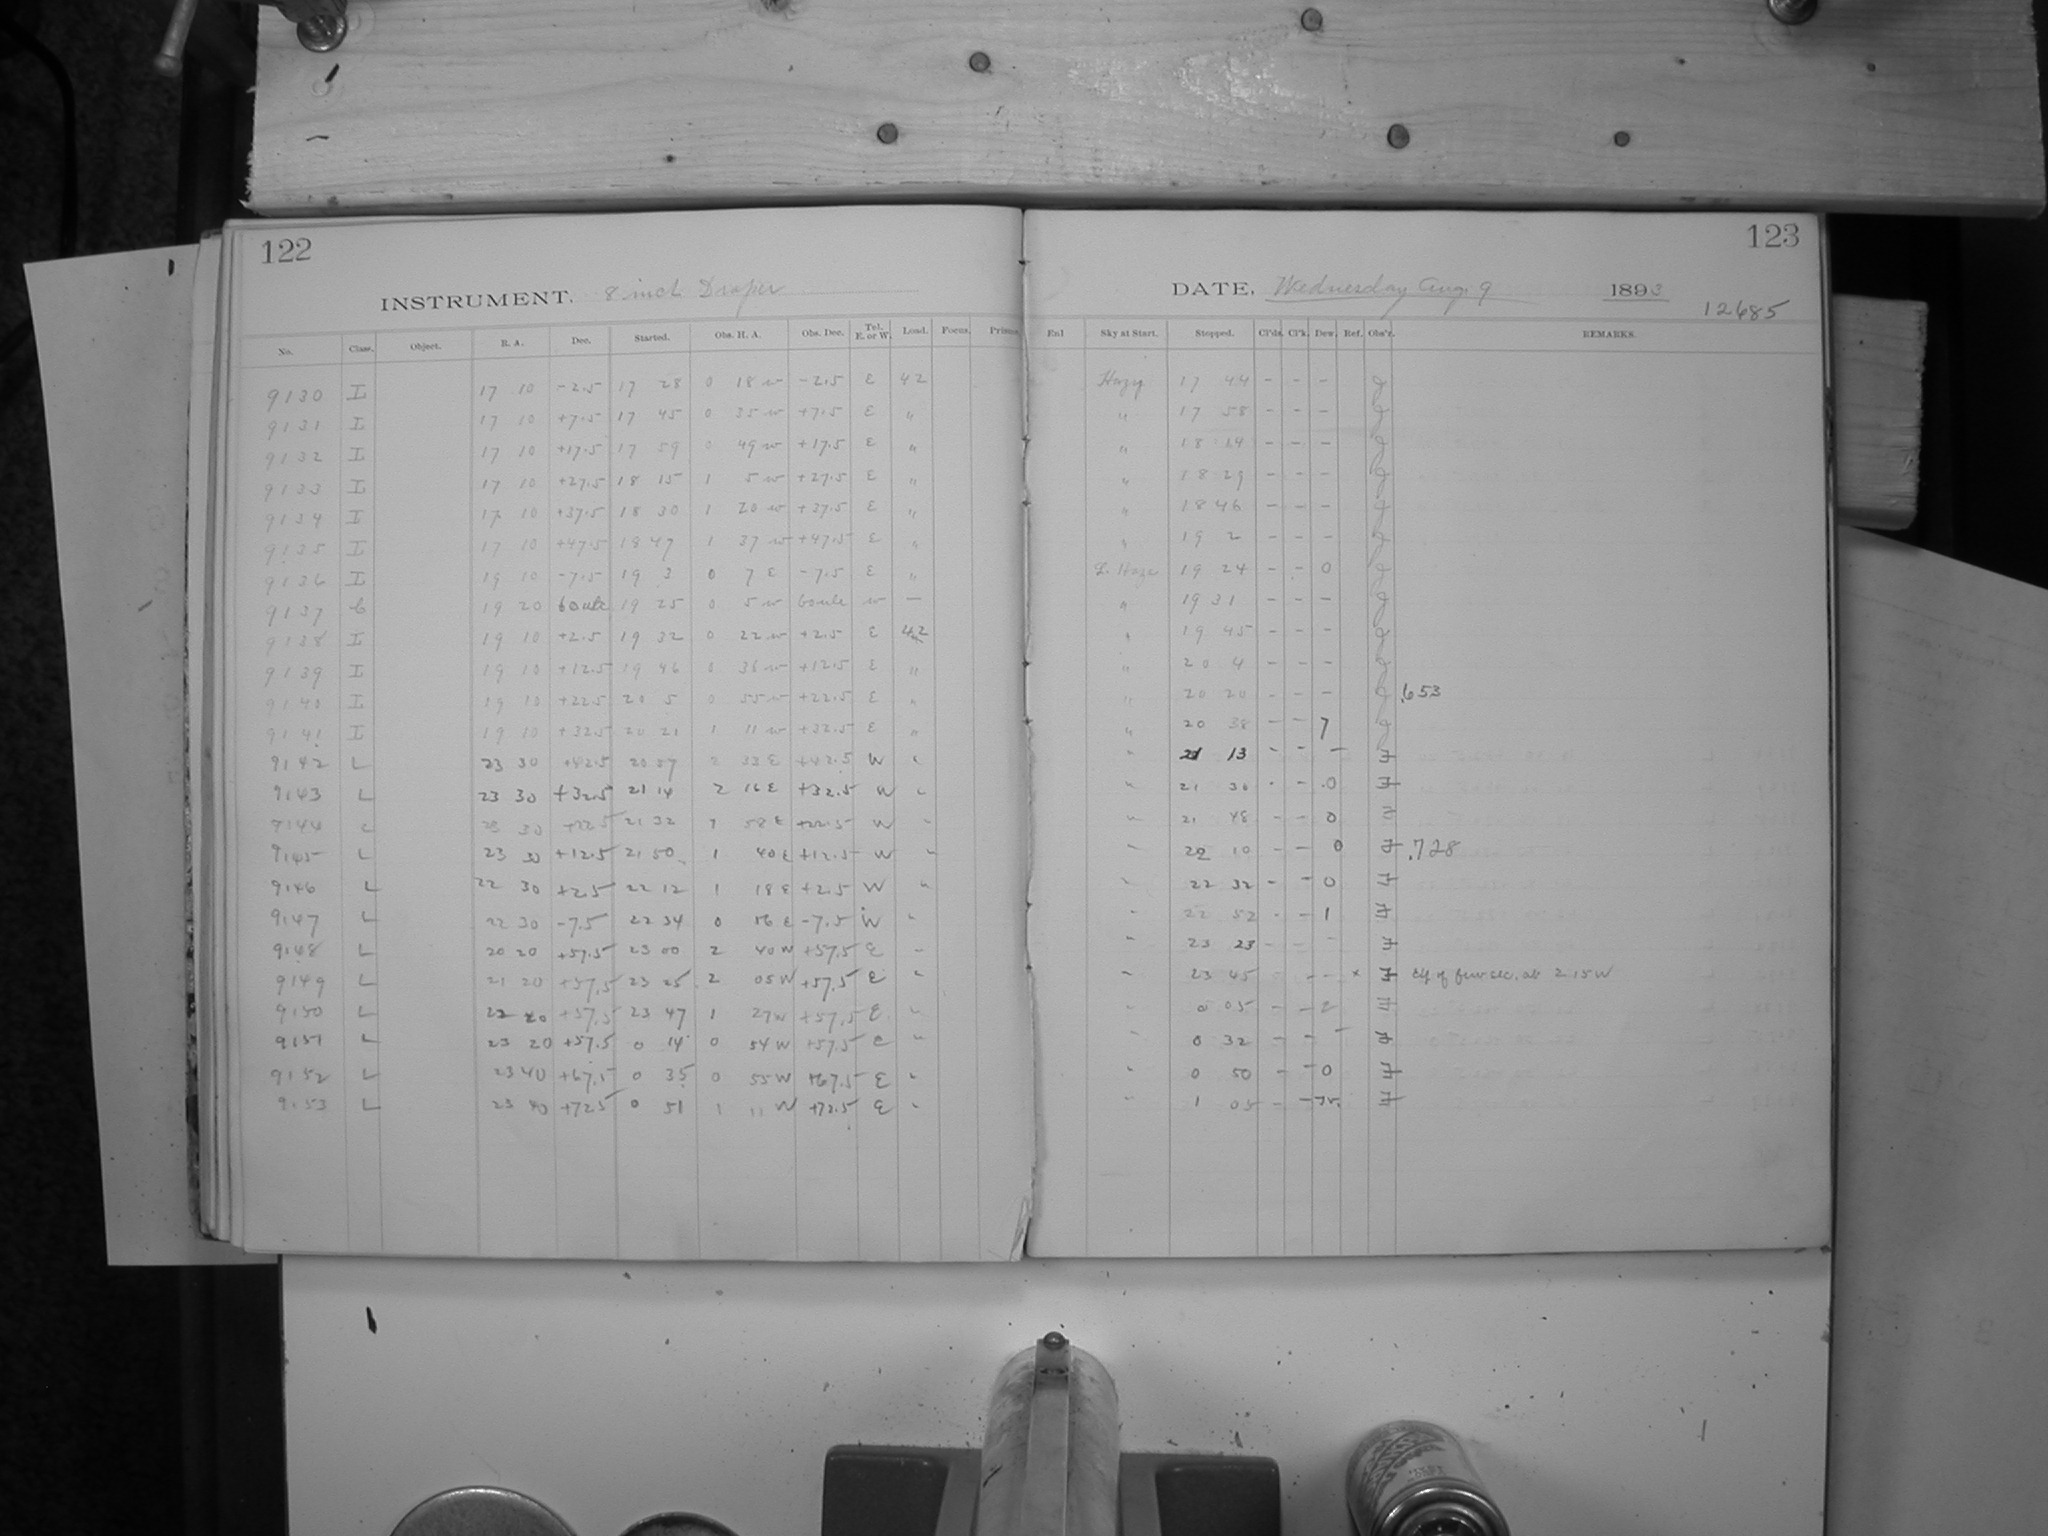 122
INSTRUMENT. 8 inch Draper
No. Class. Object. R. A. Dec. Started. Obs. H. A. Obs. Dec. Tel. E. or W. Load. Focus. Prisms
9130 I 17 10 -2.5 17 28 0 18 w -2.5 E 42
9131 I 17 10 +7.5 17 45 0 35 w +7.5 E "
9132 I 17 10 +17.5 17 59 0 49 w +17.5 E "
9133 I 17 10 +27.5 18 15 1 5 w +27.5 E "
9134 I 17 10 +37.5 18 30 1 20 w +37.5 E "
9135 I 17 10 +47.5 18 47 1 37 w +47.5 E "
9136 I 19 10 -7.5 19 3 0 7 E -7.5 E "
9137 19 20 19 25 0 5 w w —
9138 I 19 10 +2.5 19 32 0 22 w +2.5 E 42
9139 I 19 10 +12.5 19 46 0 36 w +12.5 E "
9140 I 19 10 +22.5 20 5 0 55 w +22.5 E "
9141 I 19 10 +32.5 20 21 1 11 w +32.5 E "
9142 L 23 30 +42.5 20 57 2 33 E +42.5 W "
9143 L 23 30 +32.5 21 14 2 16 E +32.5 W "
9144 L 23 30 +22.5 21 32 1 58 E +22.5 W "
9145 L 23 30 +12.5 21 50 1 40 E +12.5 W "
9146 L 22 30 +2.5 22 12 1 18 E +2.5 W "
9147 L 22 30 -7.5 22 34 0 E -7.5 W "
9148 L 20 20 +57.5 23 00 2 40 W +57.5 E "
9149 L 21 20 +57.5 23 25 2 05 W +57.5 E "
9150 L 22 20 +57.5 23 47 1 27 W +57.5 E "
9151 L 23 20 +57.5 0 14 0 54 W +57.5 E "
9152 L 23 40 +67.5 0 35 0 55 W +67.5 E "
9153 L 23 40 +72.5 0 51 1 11 W +72.5 E "
123
DATE. Wednesday Aug. 9 1893
12685
Enl Sky at Start. Stopped. Cl'ds. Cl'k. Dew. Ref. Obs'r. REMARKS.
Hazy 17 44 - - -
" 17 58 - - -
" 18 14 - - -
" 18 29 - - -
" 18 46 - - -
" 19 2 - - -
L. Haze 19 24 - - 0
" 19 31 - - -
" 19 45 - - -
" 20 4 - - -
" 20 20 - - - .653
" 20 38 - - 7
" 21 13 - - -
" 21 30 - - 0
" 21 48 - - 0
" 22 10 - - 0 .728
" 22 32 - - 0
" 22 52 - - 1
" 23 23 - - -
" 23 45 - - x few sec. at 2 15 W
" 0 05 - -
" 0 32 - - -
" 0 50 - - 0
" 1 05 - -